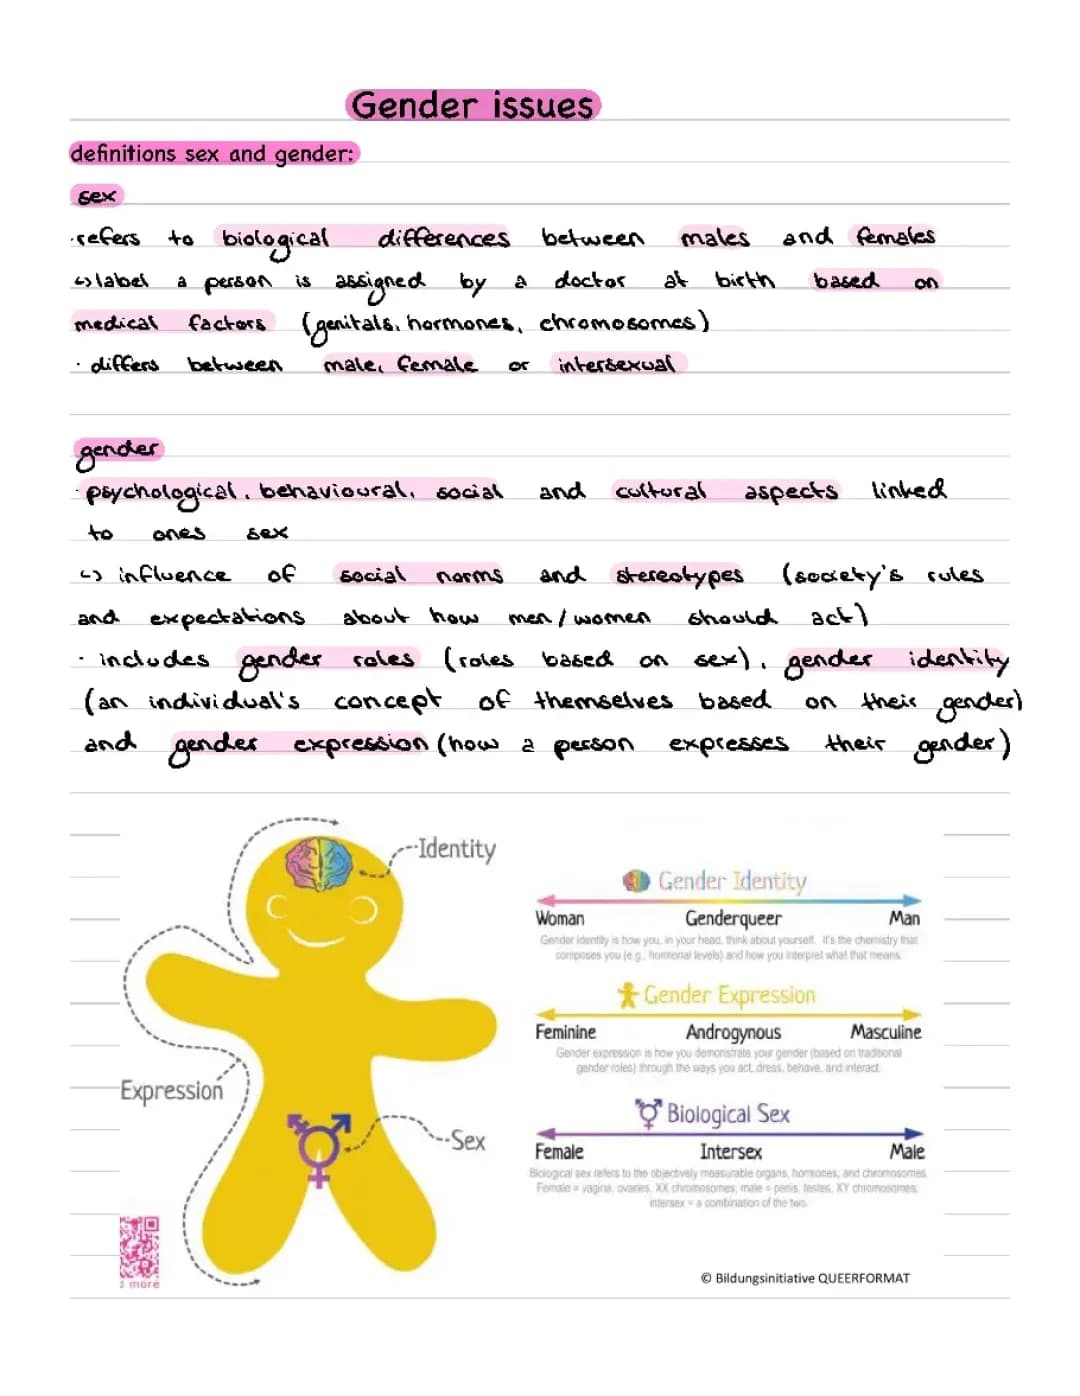 Gender issues
definitions sex and gender:
sex
·refers to biological differences between males and females
↪label a person is assigned by a doctor at birth based on
medical factors (genitals, hormones, chromosomes)
· differs between male, female or intersexual
gender
· psychological, behavioural, social and cultural aspects linked
to ones sex
↪ influence of social norms and stereotypes (society's rules
and expectations about how men/women should act)
· includes gender roles (roles based on sex), gender identity
(an individual's concept of themselves based on their gender)
and gender expression (how a person expresses their gender)
Identity
Expression
Sex
more
Gender Identity
Woman Genderqueer Man
Gender identity is how you, in your head, think about yourself. It's the chemistry that
composes you (e.g., hormonal levels) and how you interpret what that means.
Gender Expression
Feminine Androgynous Masculine
Gender expression is how you demonstrate your gender (based on traditional
gender roles) through the ways you act, dress, behave, and interact.
Biological Sex
Female Intersex Male
Biological sex refers to the objectively measurable organs, hormones, and chromosomes.
Female = vagina, ovaries, XX chromosomes; male = penis, testes, XY chromosomes;
intersex = a combination of the two.
© Bildungsinitiative QUEERFORMAT